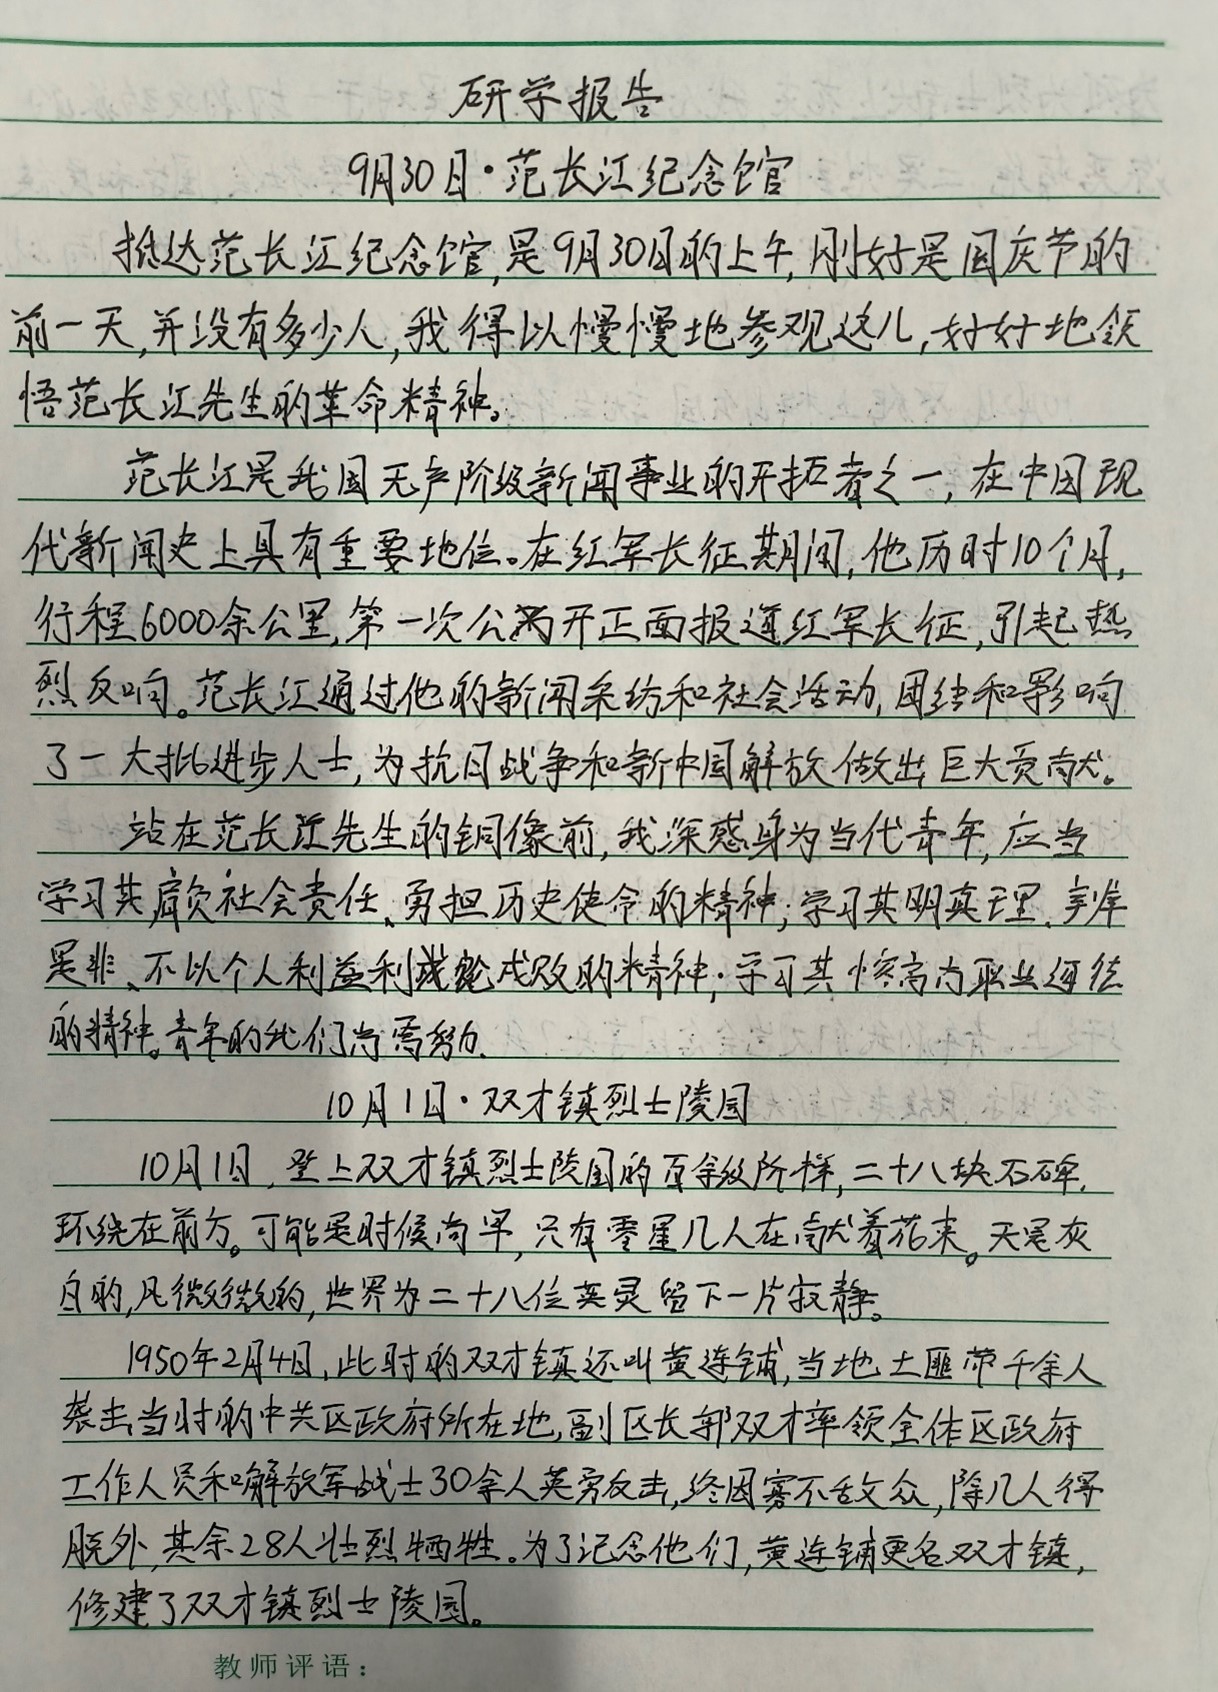 研学报告
9月30日·范长江纪念馆
抵达范长江纪念馆,是9月30日的上午,刚好是国庆节的
前一天,并没有多少人,我得以慢慢地参观这儿,好好地领
悟范长江先生的革命精神。
范长江是我国无产阶级新闻事业的开拓者之一,在中国现
代新闻史上具有重要地位。在红军长征期间,他历时10个月,
行程6000余公里,第一次公开正面报道红军长征,引起热
烈反响。范长江通过他的新闻采访和社会活动,团结和影响
了一大批进步人士,为抗日战争和新中国解放做出巨大贡献。
站在范长江先生的铜像前,我深感身为当代青年,应当
学习其肩负社会责任、勇担历史使命的精神;学习其明真理、辨
是非、不以个人利益论成败的精神;学习其崇高的职业道德
的精神。青年的我们尚需努力.
10月1日·双才镇烈士陵园
10月1日,登上双才镇烈士陵园的百余级阶梯,二十八块石碑,
环绕在前方。可能是时候尚早,只有零星几人在献着花束。天是灰
白的,风微微的,世界为二十八位英灵留下一片寂静。
1950年2月4日,此时的双才镇还叫黄连铺,当地土匪带千余人
袭击当时的中共区政府所在地,副区长郭双才率领全体区政府
工作人员和解放军战士30余人英勇反击,终因寡不敌众,除几人得
脱外,其余28人壮烈牺牲。为了记念他们,黄连铺更名双才镇,
修建了双才镇烈士陵园。
教师评语：